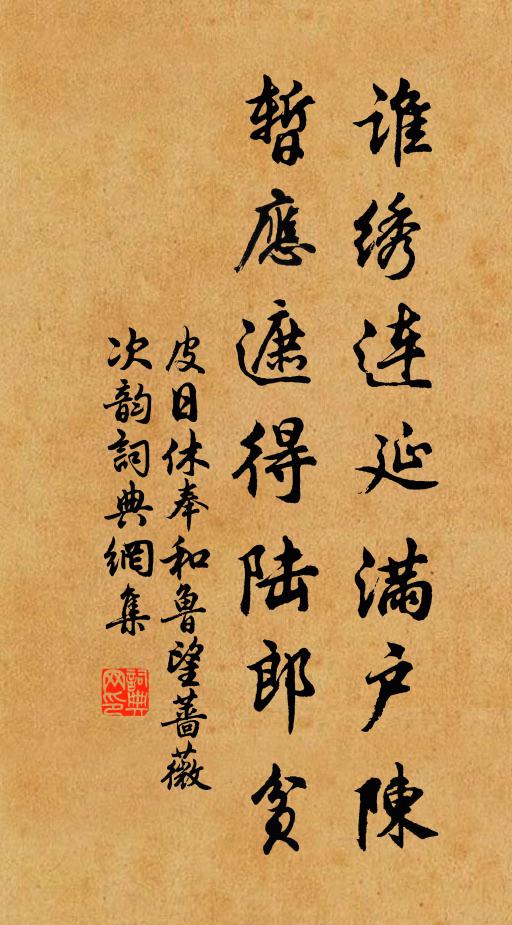 谁绣连延满户陳
暫應遮得陆郎贫
皮日休奉和鲁望蔷薇
次韵詞典網集
詞典
网印